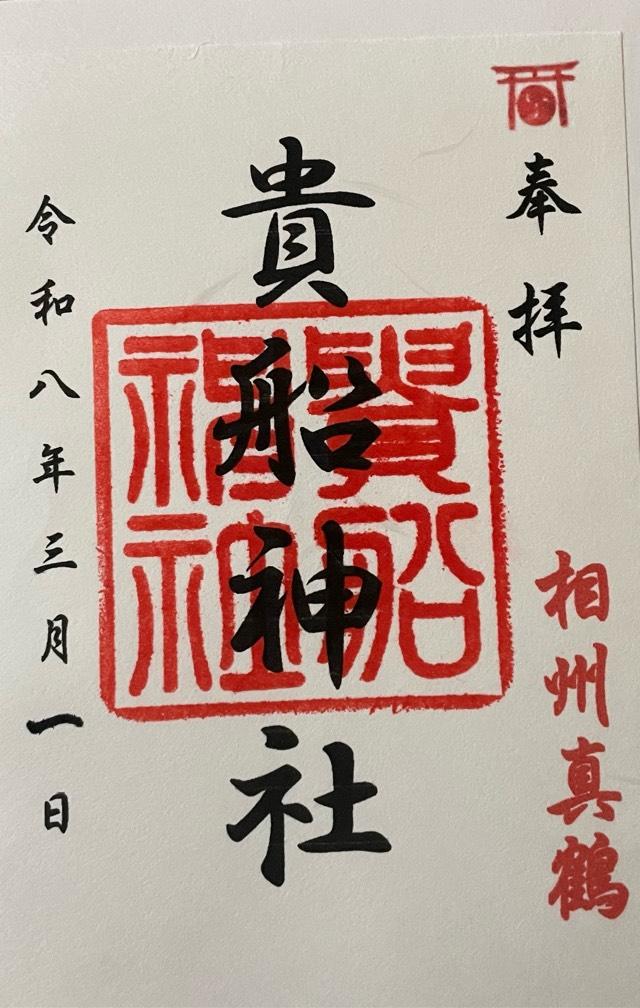 奉拝
相州真鶴
貴船神社
貴船神社
令和八年三月一日